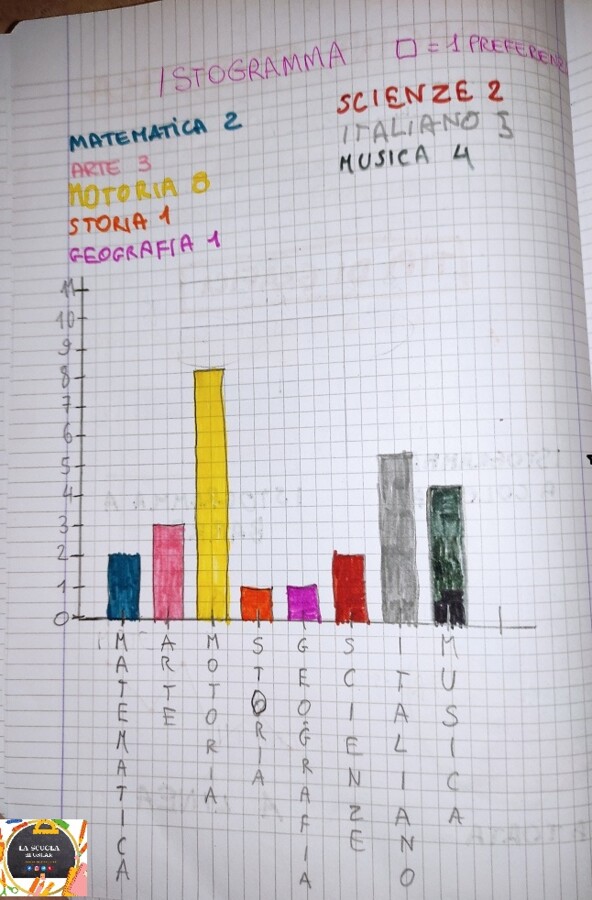 ISTOGRAMMA □ = 1 PREFEREN
MATEMATICA 2
ARTE 3
MOTORIA 8
STORIA 1
GEOGRAFIA 1
SCIENZE 2
ITALIANO 5
MUSICA 4
11
10
9
8
7
6
5
4
3
2
1
0
MATEMATICA
ARTE
MOTORIA
STORIA
GEOGRAFIA
SCIENZE
ITALIANO
MUSICA
LA SCUOLA